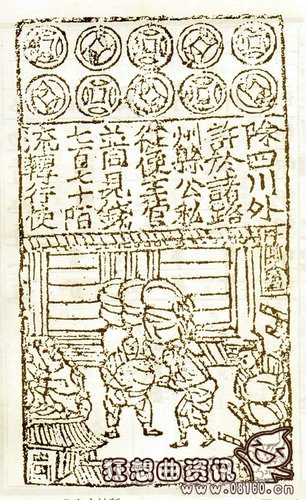 除四川外
許於諸路
州縣公私
從便主管
並同見錢
七百七十陌
流轉行使
狂想曲资讯
www.08160.cn